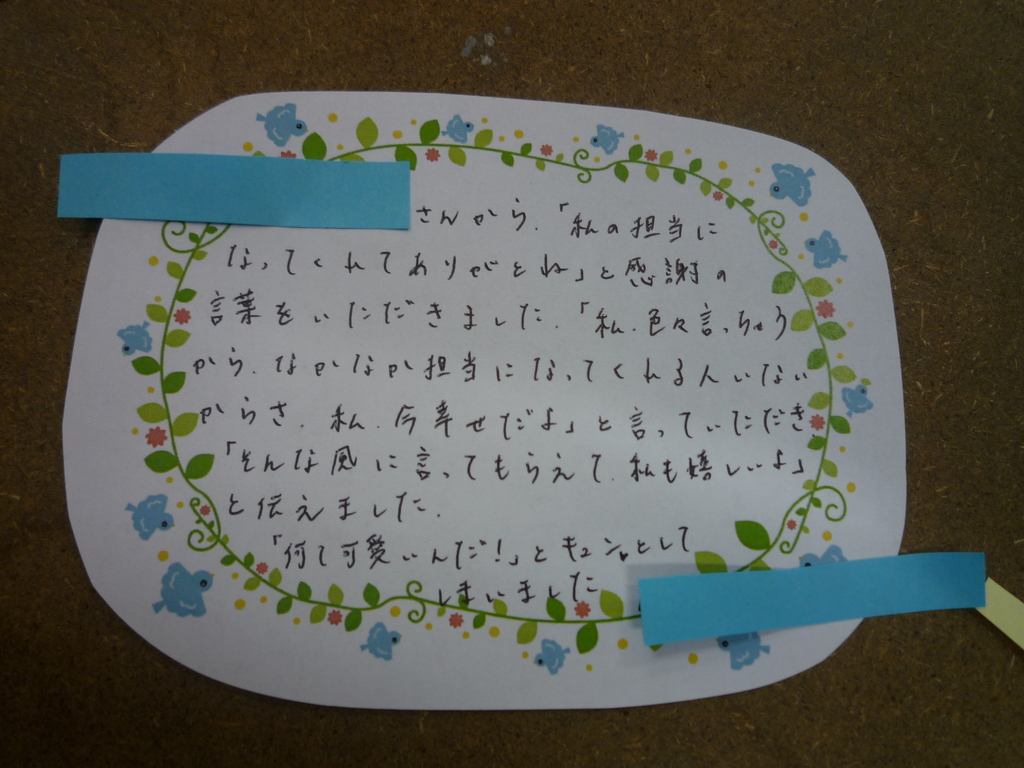 さんから、「私の担当に
なってくれてありがとね」と感謝の
言葉をいただきました。「私、色々言っちゃう
から、なかなか担当になってくれる人いない
からさ、私、今幸せだよ」と言っていただき
「そんな風に言ってもらえて、私も嬉しいよ」
と伝えました。
「何て可愛いんだ!」とキュンっとして
しまいました